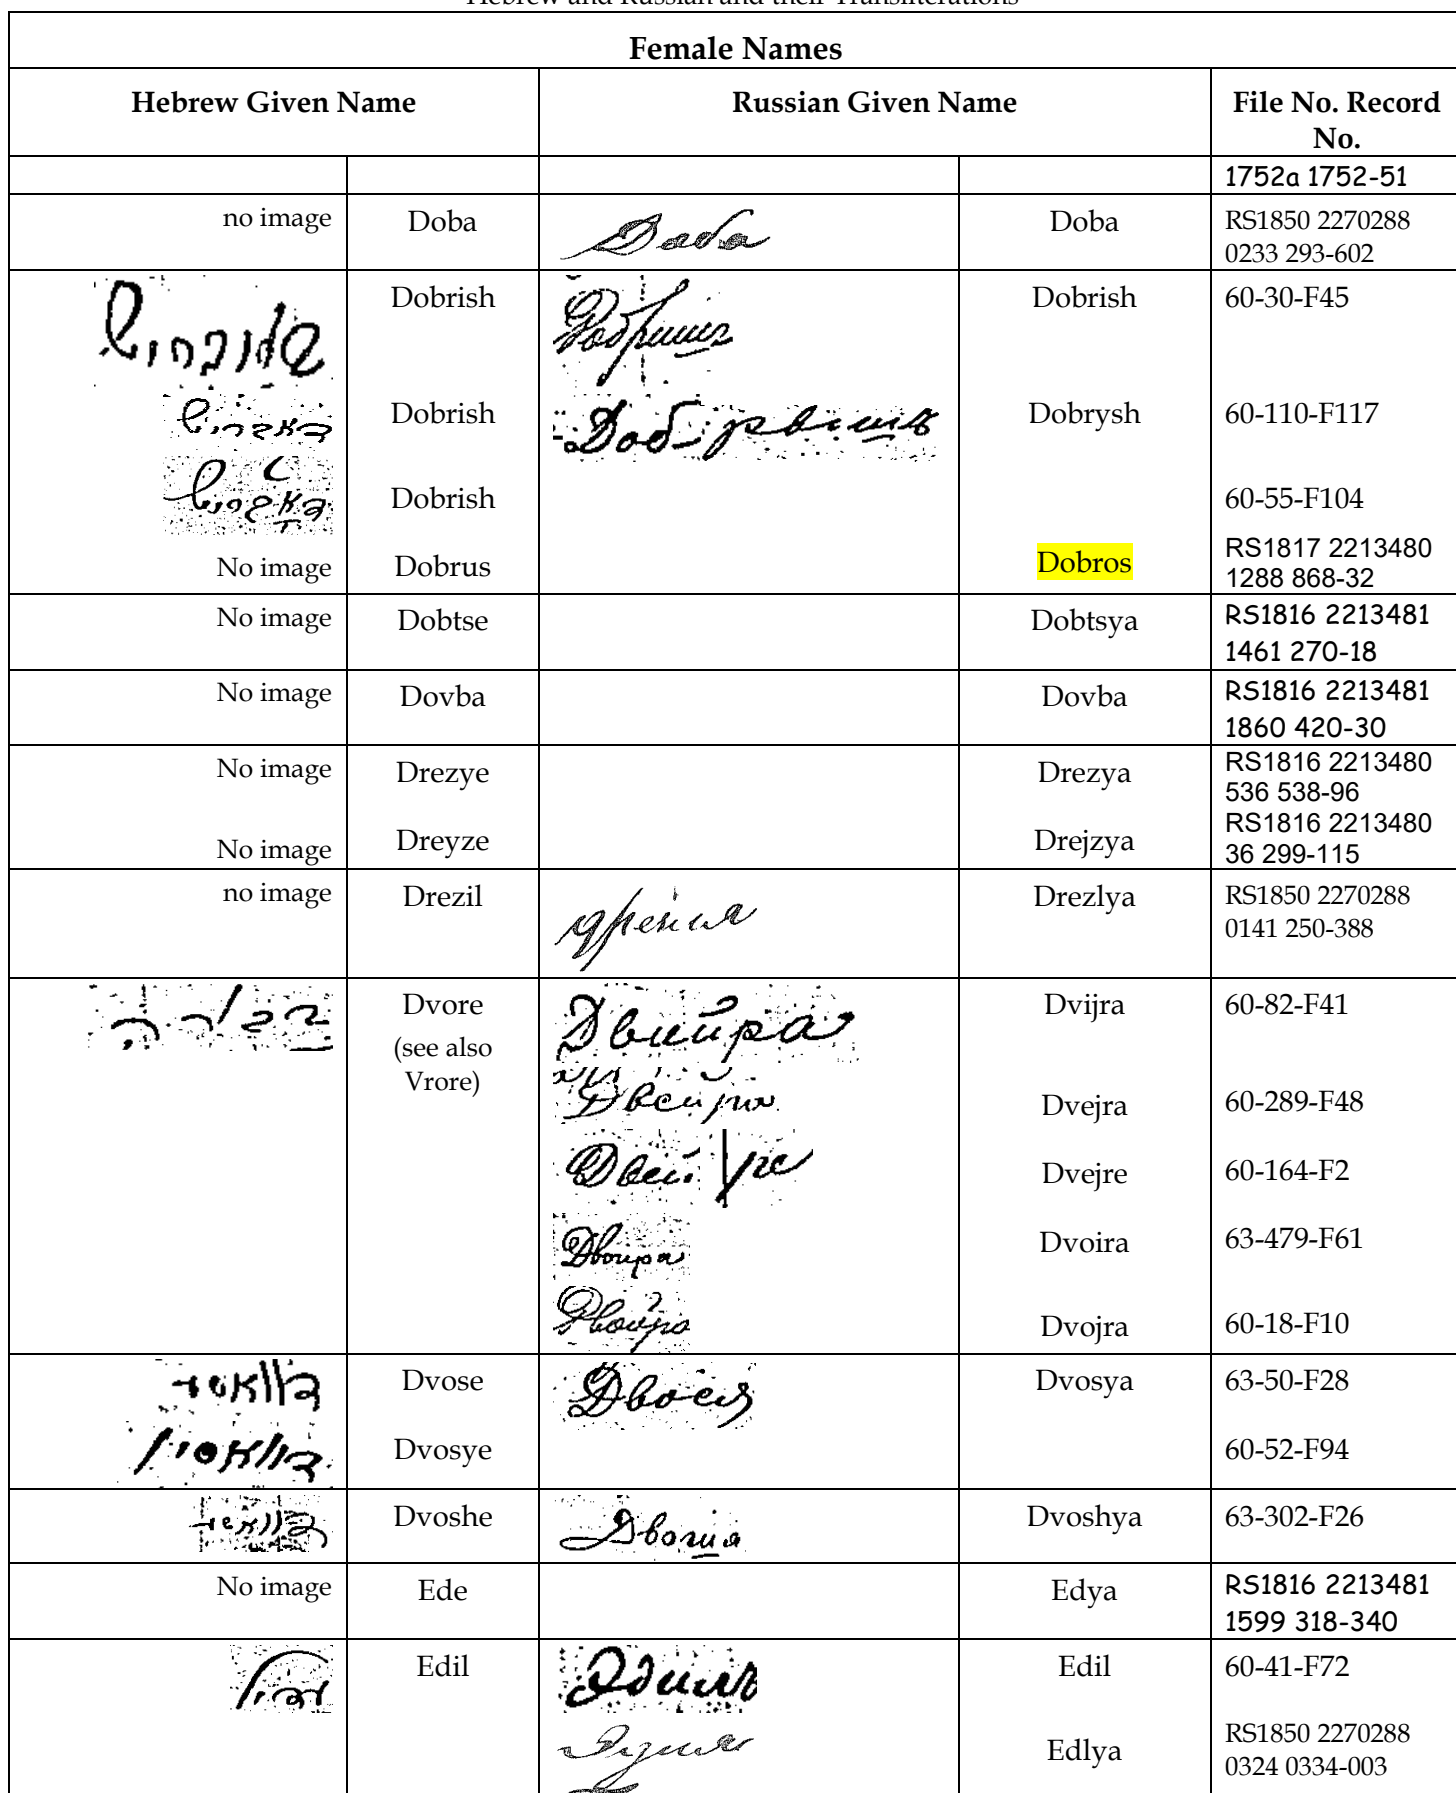 Hebrew and Russian and their Transliterations
Female Names
Hebrew Given Name Russian Given Name File No. Record No.
1752a 1752-51
no image Doba Доба Doba RS1850 2270288
0233 293-602
Dobrish Добришь Dobrish 60-30-F45
Dobrish Добрышь Dobrysh 60-110-F117
Dobrish 60-55-F104
No image Dobrus Dobros RS1817 2213480
1288 868-32
No image Dobtse Dobtsya RS1816 2213481
1461 270-18
No image Dovba Dovba RS1816 2213481
1860 420-30
No image Drezye Drezya RS1816 2213480
536 538-96
No image Dreyze Drejzya RS1816 2213480
36 299-115
no image Drezil Drezlya RS1850 2270288
0141 250-388
Dvore Двийра Dvijra 60-82-F41
(see also
Vrore)
Двейра Dvejra 60-289-F48
Двейре Dvejre 60-164-F2
Двоира Dvoira 63-479-F61
Двойра Dvojra 60-18-F10
Dvose Двося Dvosya 63-50-F28
Dvosye 60-52-F94
Dvoshe Двошя Dvoshya 63-302-F26
No image Ede Edya RS1816 2213481
1599 318-340
Edil Эдиль Edil 60-41-F72
Edlya RS1850 2270288
0324 0334-003